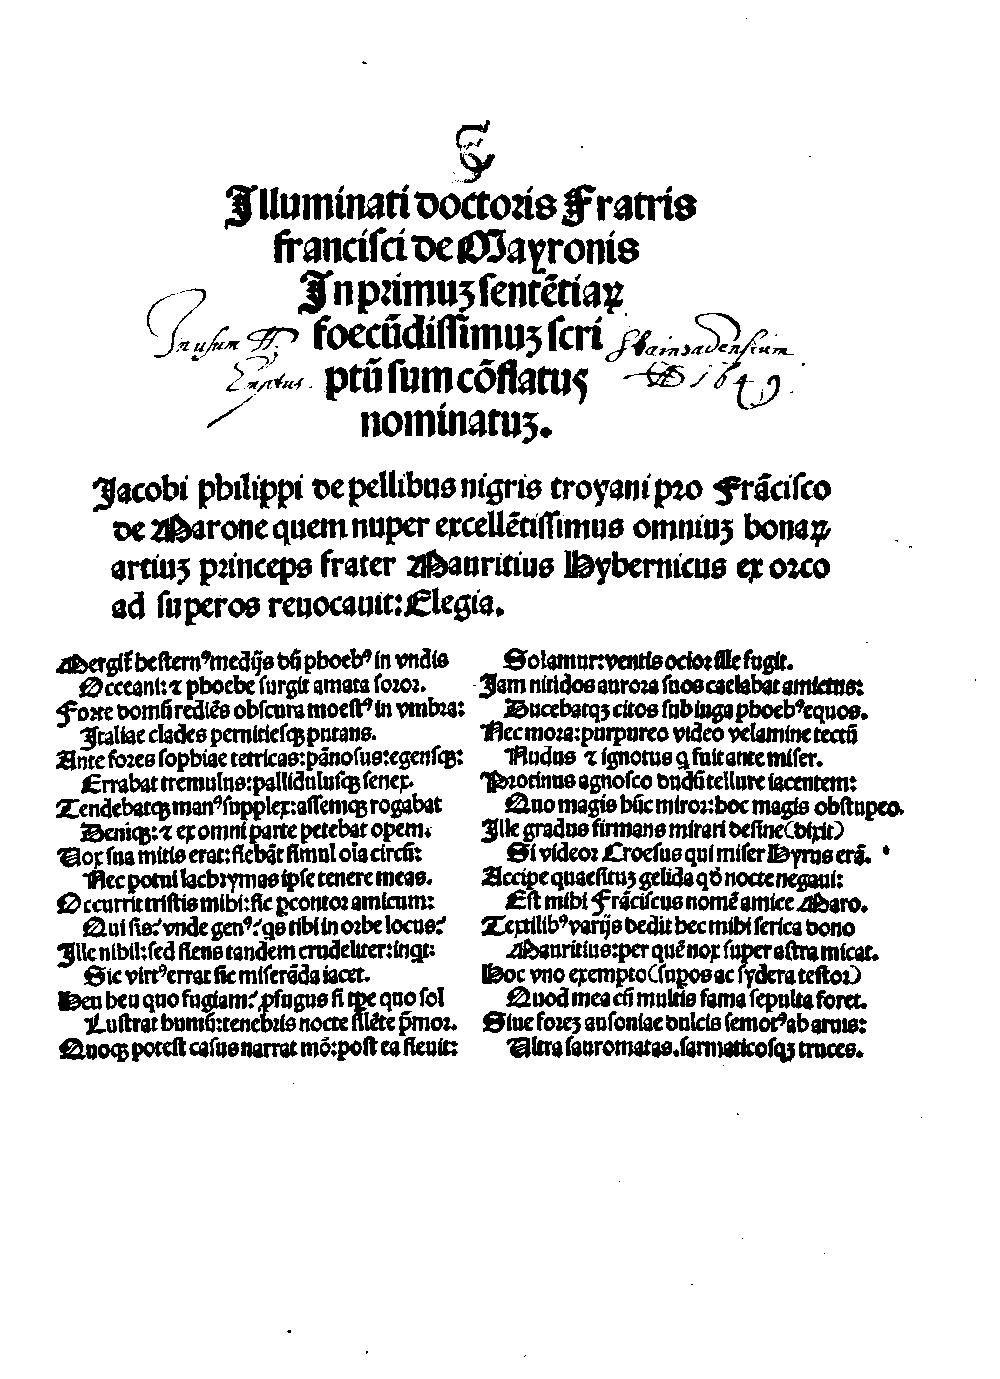 Illuminati doctoris Fratris
francisci de Mayronis
In primuꝫ sentētiaꝝ
foecūdissimuꝫ scri
ptū sum cōflatus
nominatuꝫ.
In usum FF.
Emptus.
1649
Jacobi philippi de pellibus nigris troyani pro Frācisco
de Marone quem nuper excellētissimus omniuꝫ bonaꝝ
artiuꝫ princeps frater Mauritius Hybernicus ex orco
ad superos reuocauit: Elegia.
Mergit᷑ hesternꝰ medijs dū phoebꝰ in vndis
Occeani: ⁊ phoebe surgit amata soror.
Forte domū rediēs obscura moestꝰ in vmbra:
Italiae clades pernitiesqꝫ putans.
Ante fores sophiae tetricas: pānosus: egensqꝫ:
Errabat tremulus: pallidulusqꝫ senex.
Tendebatqꝫ manꝰ supplex: assemqꝫ rogabat
Deniqꝫ: ⁊ ex omni parte petebat opem.
Vox sua mitis erat: flebāt simul oīa circū:
Nec potui lachrymas ipse tenere meas.
Occurrit tristis mihi: sic ꝑcontor amicum:
Qui sis: vnde genꝰ: qs tibi in orbe locus:
Ille nihil: sed flens tandem crudeliter: inqt:
Sic virtꝰ errat sic miserāda iacet.
Heu heu quo fugiam: ꝓfugus si tpe quo sol
Lustrat humū: tenebris nocte silēte p̄mor.
Quoqꝫ potest casus narrat mō: post ea fleuit:
Solamur: ventis ocior ille fugit.
Jam nitidos aurora suos caelabat amictus:
Ducebatqꝫ citos sub iuga phoebꝰ equos.
Nec mora: purpureo video velamine tectū
Nudus ⁊ ignotus q fuit ante miser.
Protinus agnosco dudū tellure iacentem:
Quo magis hūc miror: hoc magis obstupeo.
Ille gradus firmans mirari desine (dixit)
Si videor Croesus qui miser Hyrus erā.
Accipe quaesituꝫ gelida qđ nocte negaui:
Est mihi Frāciscus nomē amice Maro.
Textilibꝰ varijs dedit hec mihi serica dono
Mauritius: per quē nox super astra micat.
Hoc vno exempto (supos ac sydera testor)
Quod mea cū multis fama sepulta foret.
Siue foreꝫ ausoniae dulcis semotꝰ ab aruis:
Vltra sauromatas. sarmaticosqꝫ truces.